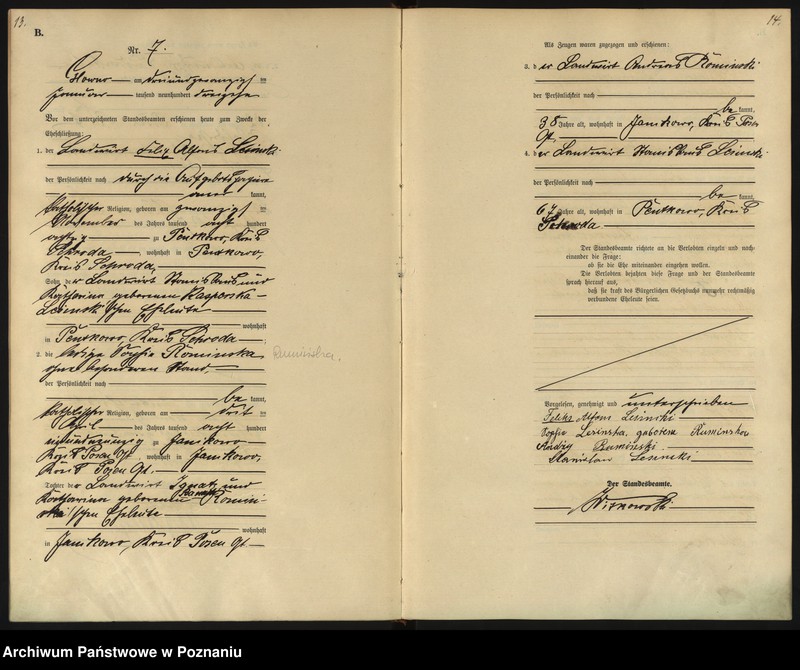 13.
B.
Nr. 7.
Glowno am dreiundzwanzigsten
Januar tausend neunhundert dreizehn
Vor dem unterzeichneten Standesbeamten erschienen heute zum Zwecke der
Eheschließung:
1. der Landwirt Felix Alfons Lesinski
der Persönlichkeit nach durch die Aufgebotspapiere
anerkannt,
katholischer Religion, geboren am zwanzigsten
November des Jahres tausend acht hundert
achtzig zu Pentkowo, Kreis
Schroda, wohnhaft in Pentkowo,
Kreis Schroda,
Sohn der Landwirt Stanislaus und
Katharina geborenen Kasperska
Lesinski'schen Eheleute
wohnhaft
in Pentkowo, Kreis Schroda;
2. die ledige Sophie Rominska
ohne besonderen Stand, Ruminska,
der Persönlichkeit nach
bekannt,
katholischer Religion, geboren am dritten
April des Jahres tausend acht hundert
neunzig zu Janikowo
Kreis Posen Ost, wohnhaft in Janikowo,
Kreis Posen Ost.
Tochter der Landwirt Ignatz und
Katharina geborenen Romin-
ski'schen Eheleute
wohnhaft
in Janikowo, Kreis Posen Ost
14.
Als Zeugen waren zugezogen und erschienen:
3. der Landwirt Andreas Rominski
der Persönlichkeit nach
bekannt,
38 Jahre alt, wohnhaft in Janikowo, Kreis Posen
Ost.
4. der Landwirt Stanislaus Lesinski
der Persönlichkeit nach
bekannt,
67 Jahre alt, wohnhaft in Pentkowo, Kreis
Schroda.
Der Standesbeamte richtete an die Verlobten einzeln und nach-
einander die Frage:
ob sie die Ehe miteinander eingehen wollen.
Die Verlobten bejahten diese Frage und der Standesbeamte
sprach hierauf aus,
daß sie kraft des Bürgerlichen Gesetzbuchs nunmehr rechtmäßig
verbundene Eheleute seien.
Vorgelesen, genehmigt und unterschrieben
Feliks Alfons Lesinski
Sophie Lesinska, geborena Ruminska
Andrzej Rumiński
Stanislaw Lesinski
Der Standesbeamte.
Wisnowski
Archiwum Państwowe w Poznaniu